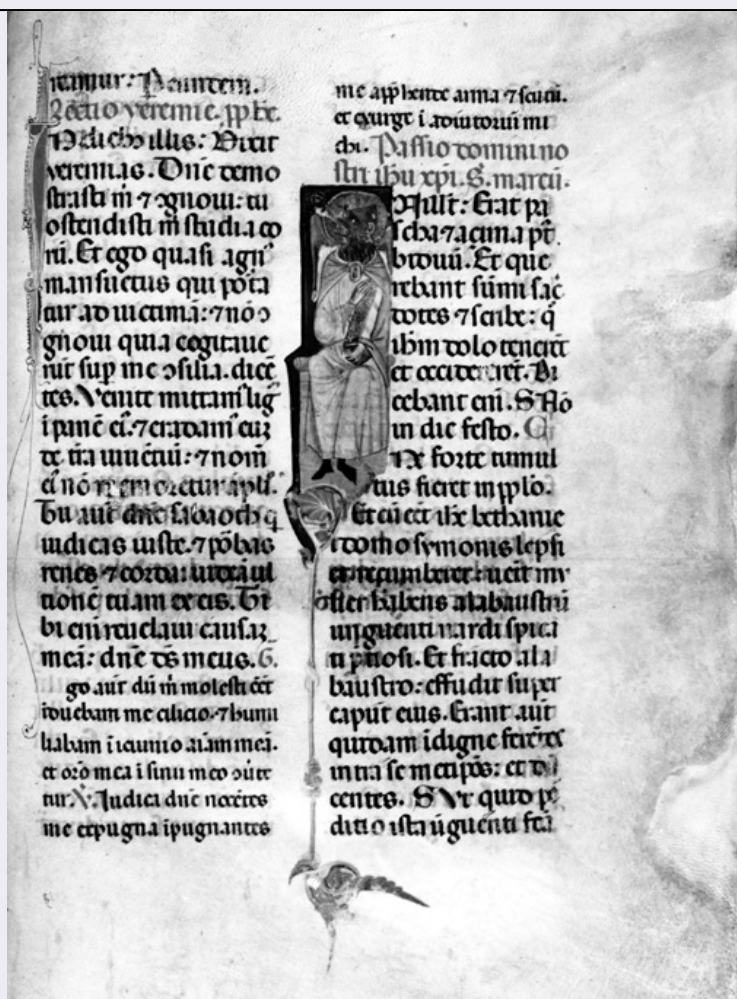 ramur: Per eundem.
Lectio yeremie. pphe.
N dieb illis: Dixit
yeremias. Dñe demo
strasti m̄ ⁊ ꝯgnoui: tu
ostendisti m̄ studia eo
rū. Et ego quasi agn᷒
mansuetus qui porta
tur ad uictimā: ⁊ nō ꝯ
gnoui quia cogitaue
rūt sup me ꝯsilia. dicē
tes. Venite mittam᷒ lig
ī panē ei᷒. ⁊ eradam᷒ euȝ
de tr̄a uiuētiū: ⁊ nom̄
ei᷒ nō memoretur
Tu aut dñe sabaoth q
iudicas iuste. ⁊ pbas
renes ⁊ corda: uideā ul
tionē tuam ex eis. Ti
bi enī reuelaui causaȝ
meā: dñe ds meus. G.
go aut dū m̄ molesti eēt
īduebam me cilicio. ⁊ humi
liabam ī ieiunio aīam meā.
et orō mea ī sinu meo ꝯūte
tur. V. Iudica dñe nocētes
me expugna īpugnantes
me apphende arma ⁊ scutū.
et exurge ī adiutoriū mi
chi. Passio domini no
stri ihu xpi. S. marcū.
N illī: Erat pa
scha ⁊ acima pt᷒
biduū. Et que
rebant sūmi sac
dotes ⁊ scribe: q
ihm dolo tenerēt
et occiderēt. Di
cebant enī. S Nō
in die festo. C
Ne forte tumul
tus fieret in pplo.
Et cū eēt ihc bethanie
ī domo symonis lepsi
et recumberet: uēit mu
lier habens alabaustrū
unguenti nardi spica
ti ptiosi. Et fracto ala
baustro: effudit super
caput eius. Erant aut
quidam īdigne ferētes
intra se metipos: et di
centes. S Vt quid pe
ditio ista ūguenti fca